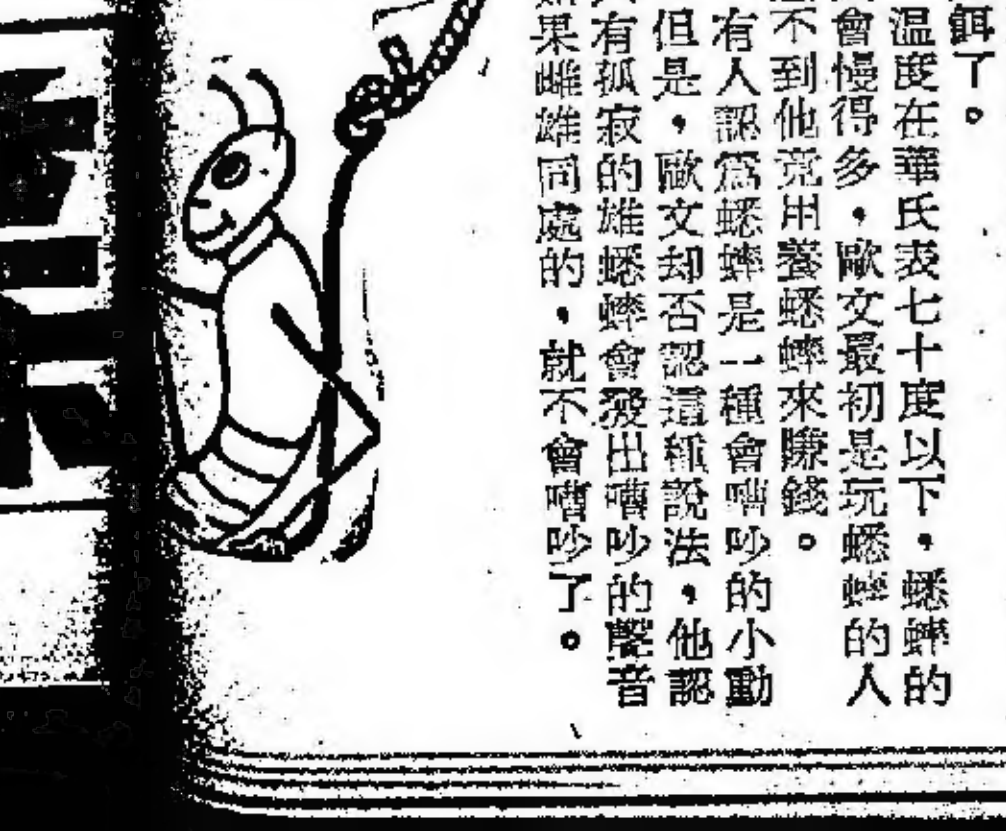 餌了。
温度在華氏表七十度以下,蟋蟀的
會慢得多,歐文最初是玩蟋蟀的人
不到他竟用養蟋蟀來賺錢。
有人認爲蟋蟀是一種會嘈吵的小動
但是,歐文却否認這種說法,他認
有孤寂的雄蟋蟀會發出嘈吵的聲音
果雌雄同處的,就不會嘈吵了。